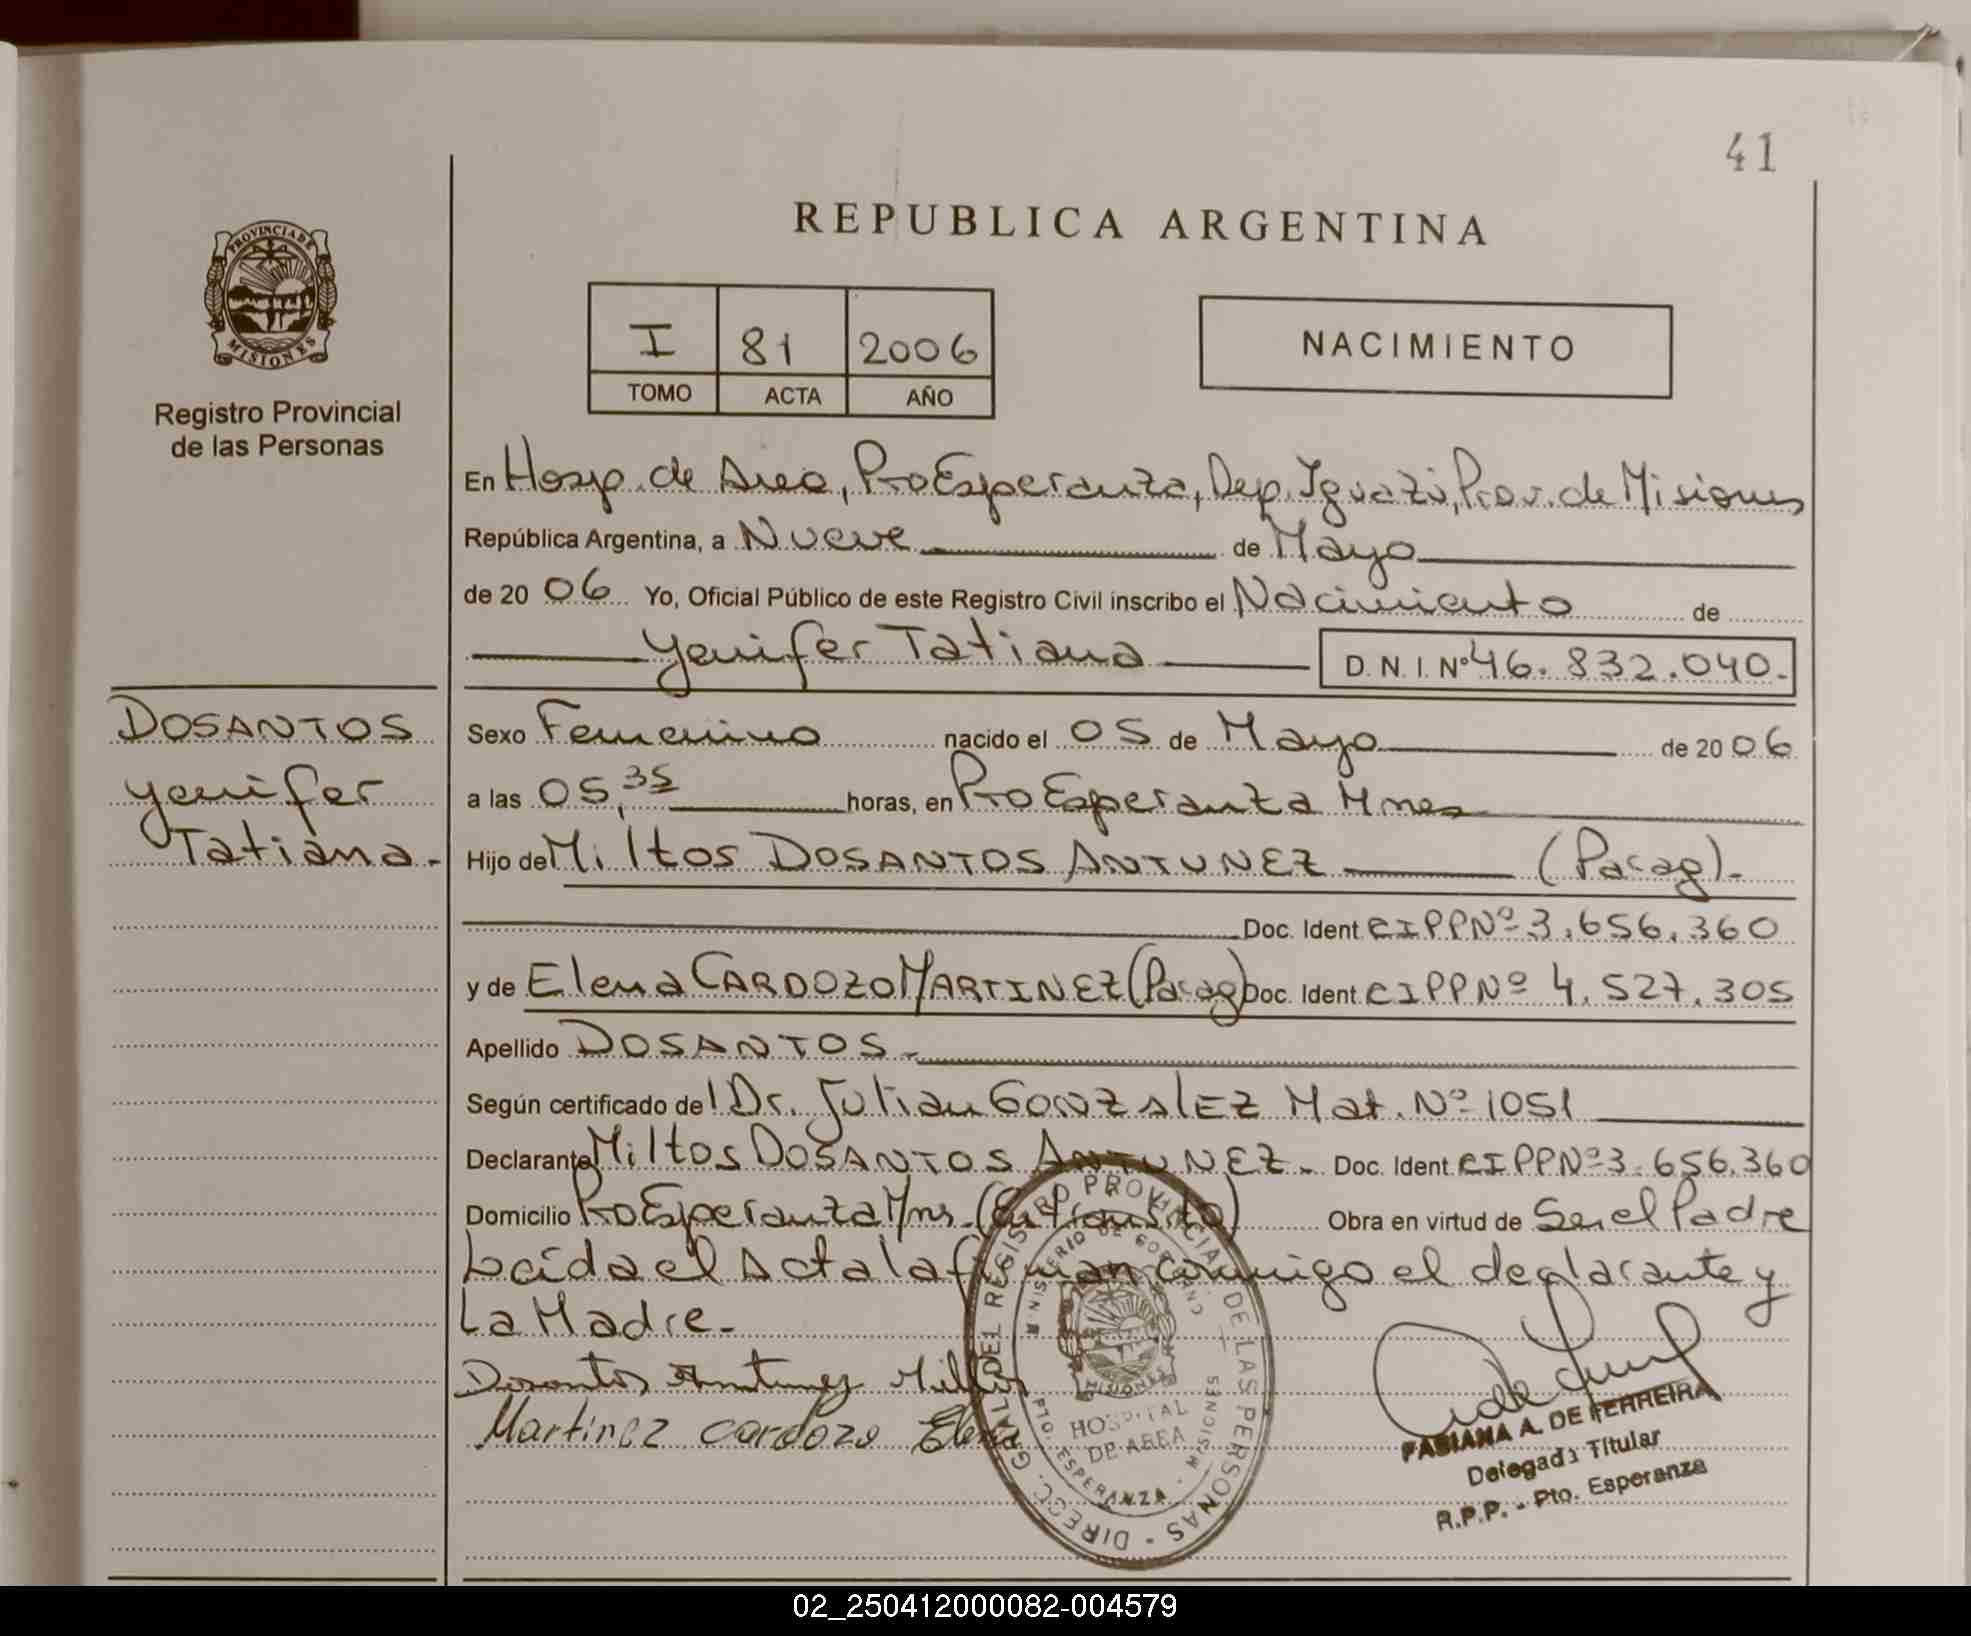 41
REPUBLICA ARGENTINA
PROVINCIA DE
MISIONES
Registro Provincial
de las Personas
I 81 2006
TOMO ACTA AÑO
NACIMIENTO
En Hosp. de Area, Pto Esperanza, Dep. Iguazú, Prov. de Misiones
República Argentina, a Nueve de Mayo
de 20 06 Yo, Oficial Público de este Registro Civil inscribo el Nacimiento de
Yenifer Tatiana D.N.I. Nº 46.832.040.-
DOSANTOS
Yenifer
Tatiana.-
Sexo Femenino nacido el 05 de Mayo de 20 06
a las 05,35 horas, en Pto Esperanza Mnes
Hijo de Miltos DOSANTOS ANTUNEZ (Parag).-
Doc. Ident. CIPPNº 3.656.360
y de Elena CARDOZO MARTINEZ (Parag) Doc. Ident. CIPPNº 4.527.305
Apellido DOSANTOS.-
Según certificado de l Dr. Julian GONZALEZ Mat. Nº 1051
Declarante Miltos DOSANTOS ANTUNEZ.- Doc. Ident. CIPPNº 3.656.360
Domicilio Pto Esperanza Mns. (En Transito) Obra en virtud de Ser el Padre
Leída el Acta la firman conmigo el declarante y
La Madre.-
Dosantos Antunez Miltos
Martinez cardozo Elena
DIRECC. GRAL. DEL REGISTRO PROVINCIAL DE LAS PERSONAS -
MINISTERIO DE GOBIERNO
MISIONES
HOSPITAL
DE AREA
PTO. ESPERANZA - MISIONES
FABIANA A. DE FERREIRA
Delegada Titular
R.P.P. - Pto. Esperanza
02_250412000082-004579